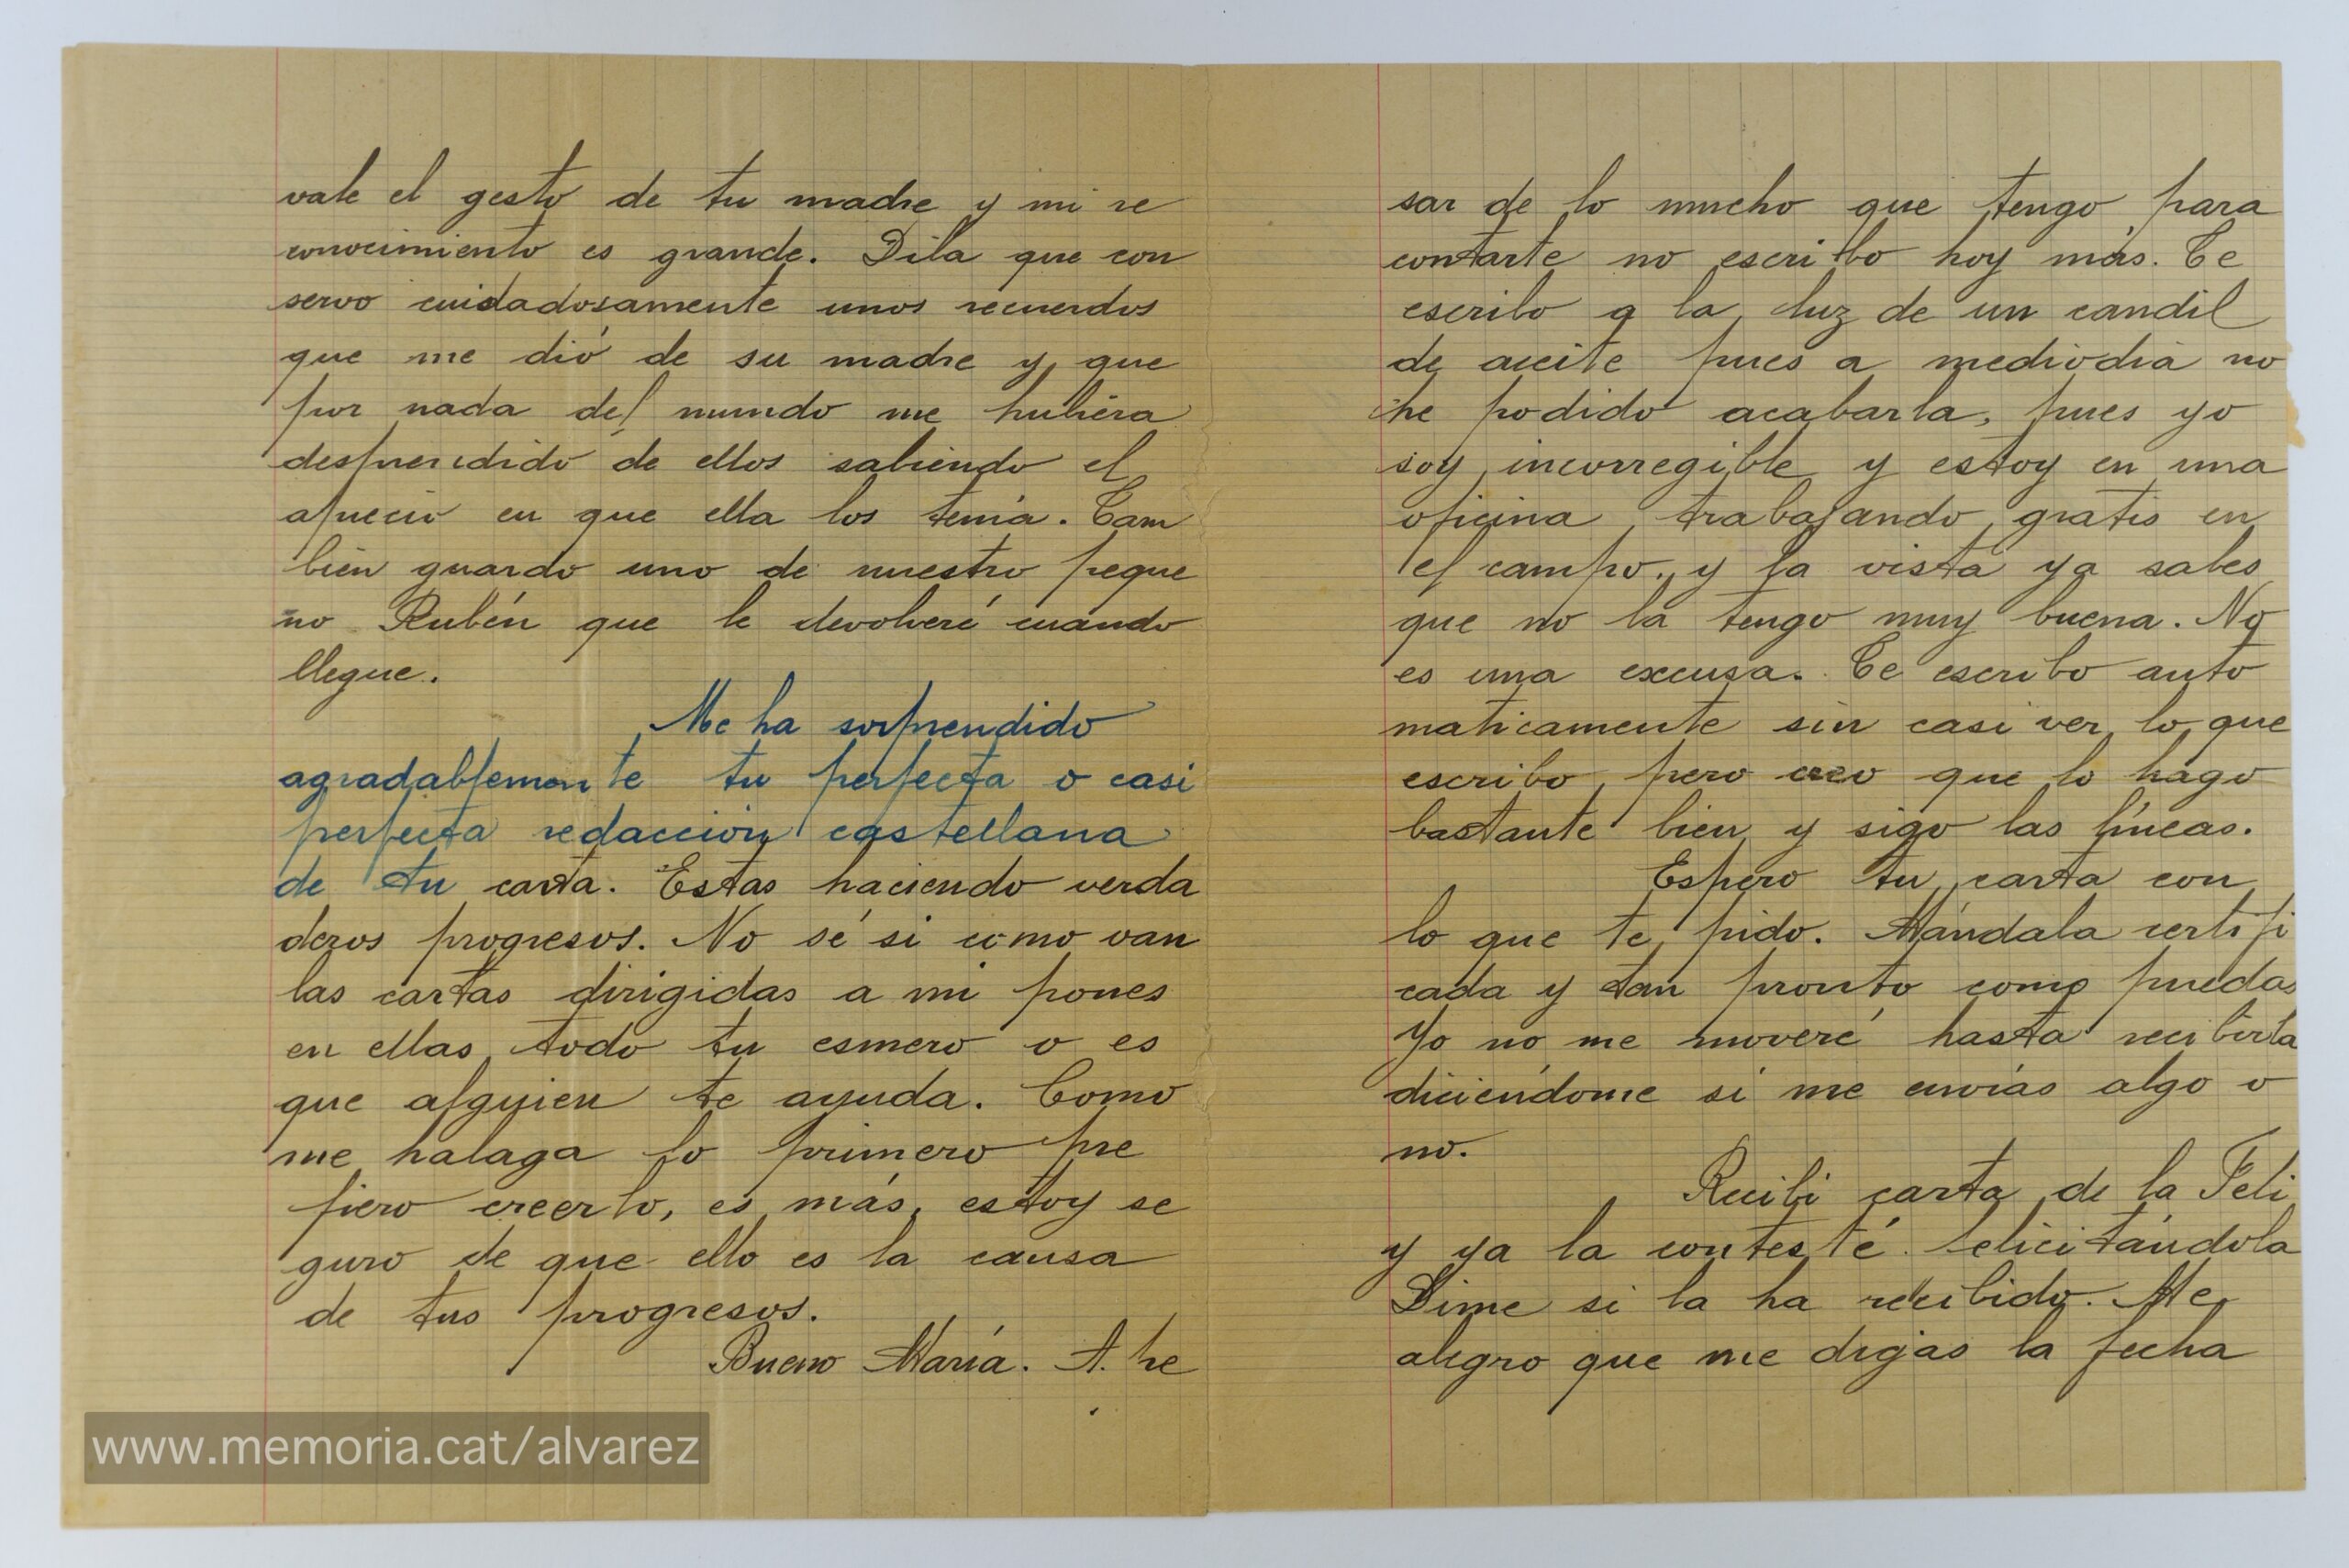 vale el gesto de tu madre y mi re
conocimiento es grande. Dila que con
servo cuidadosamente unos recuerdos
que me dió de su madre y que
por nada del mundo me hubiera
desprendido de ellos sabiendo el
aprecio en que ella los tenia. Tam
bien guardo uno de nuestro peque
no Rubén que le devolveré cuando
llegue.
Me ha sorprendido
agradablemente tu perfecta o casi
perfecta redacción castellana
de tu carta. Estas haciendo verda
deros progresos. No sé si como van
las cartas dirigidas a mi pones
en ellas todo tu esmero o es
que alguien te ayuda. Como
me halaga lo primero pre
fiero creerlo, es más, estoy se
guro de que ello es la causa
de tus progresos.
Bueno María. A pe
sar de lo mucho que tengo para
contarte no escribo hoy más. Te
escribo a la luz de un candil
de aceite pues a mediodia no
he podido acabarla, pues yo
soy incorregible y estoy en una
oficina, trabajando gratis en
el campo, y la vista ya sabes
que no la tengo muy buena. No
es una excusa. Te escribo auto
maticamente sin casi ver lo que
escribo, pero creo que lo hago
bastante bien y sigo las líneas.
Espero tu carta con
lo que te pido. Mándala certifi
cada y tan pronto como puedas
Yo no me moveré hasta recibirla
diciendome si me envias algo o
no.
Recibi carta de la Feli
y ya la contesté felicitándola
Dime si la ha recibido. Me
alegro que me digas la fecha
www.memoria.cat/alvarez